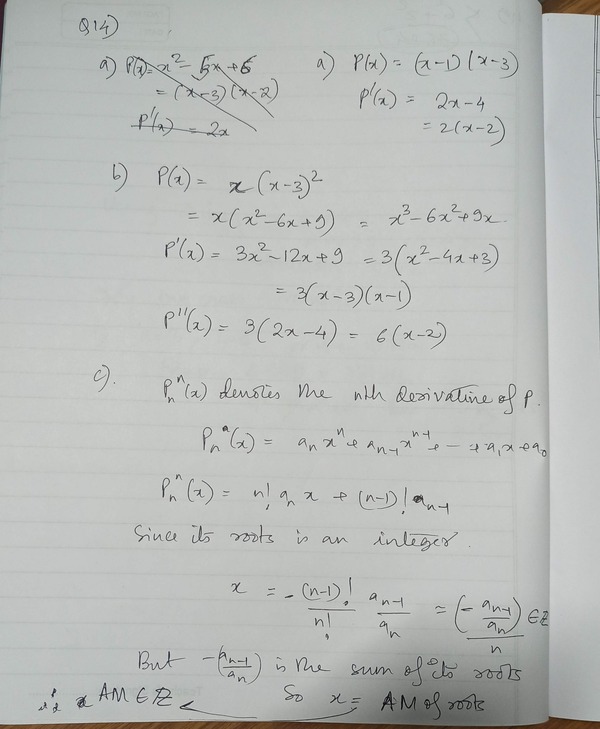 Q14)
a) P(x) = x² - 5x + 6
= (x-3)(x-2)
P'(x) = 2x
a) P(x) = (x-1)(x-3)
P'(x) = 2x-4
= 2(x-2)
b) P(x) = x(x-3)²
= x(x²-6x+9) = x³-6x²+9x.
P'(x) = 3x²-12x+9 = 3(x²-4x+3)
= 3(x-3)(x-1)
P''(x) = 3(2x-4) = 6(x-2)
c). Pₙⁿ(x) denotes the nth derivative of P.
Pₙ(x) = aₙxⁿ + aₙ₋₁xⁿ⁻¹ + -- + a₁x + a₀
Pₙⁿ(x) = n! aₙ x + (n-1)! aₙ₋₁
Since its roots is an integer.
x = - (n-1)!/n! aₙ₋₁/aₙ = (-aₙ₋₁/aₙ)/n ∈ ℤ
But -(aₙ₋₁/aₙ) is the sum of its roots
So x = AM of roots
AM ∈ ℤ